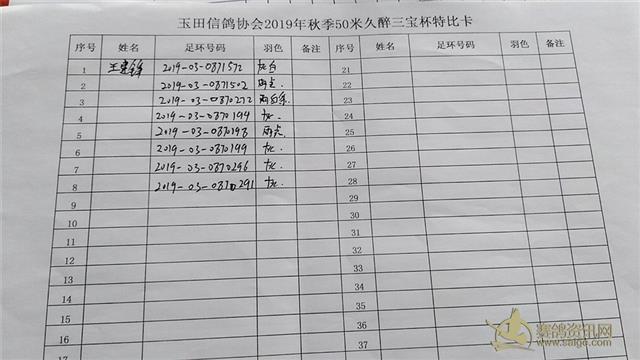 玉田信鸽协会2019年秋季50米久醉三宝杯特比卡
序号 姓名 足环号码 羽色 备注 序号 姓名 足环号码 羽色 备注
1 2019-03-0871572 灰白 21
2 2019-03-0871502 雨点 22
3 2019-03-0870272 雨白条 23
4 2019-03-0870194 灰. 24
5 2019-03-0870198 雨点 25
6 2019-03-0870199 灰. 26
7 2019-03-0870296 灰. 27
8 2019-03-0870291 灰. 28
9 29
10 30
11 31
12 32
13 33
14 34
15 35
16 36
17 37
赛鸽资讯网
www.saige.com